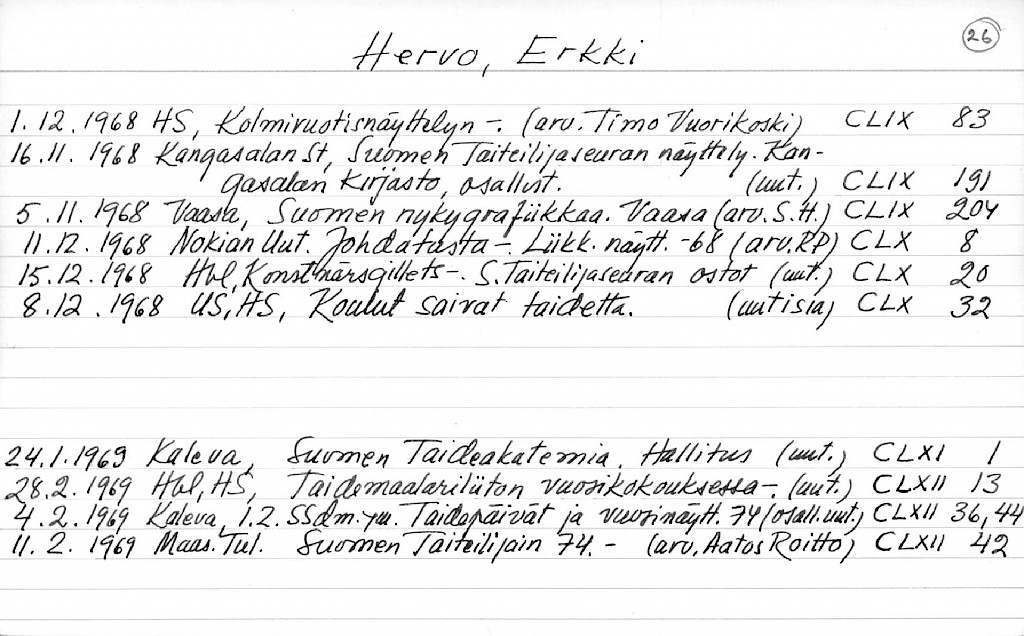 26
Hervo, Erkki
1.12.1968 HS, Kolmivuotisnäyttelyn -. (arv. Timo Vuorikoski) CLIX 83
16.11.1968 Kangasalan St, Suomen Taiteilijaseuran näyttely. Kan-
gasalan Kirjasto, osallist. (uut.) CLIX 191
5.11.1968 Vaasa, Suomen nykygrafiikkaa. Vaasa (arv. S.H.) CLIX 204
11.12.1968 Nokian Uut. Johdatusta -. Liikk. näytt. -68 (arv. RP) CLX 8
15.12.1968 Hbl, Konstnärsgillets -. S. Taiteilijaseuran ostot (uut.) CLX 20
8.12.1968 US, HS, Koulut saivat taidetta. (uutisia) CLX 32
24.1.1969 Kaleva, Suomen Taideakatemia. Hallitus (uut.) CLXI 1
28.2.1969 Hbl, HS, Taidemaalariliiton vuosikokouksessa -. (uut.) CLXII 13
4.2.1969 Kaleva, 1.2. SSdm. ym. Taidepäivät ja vuosinäytt. 74 (osall. uut.) CLXII 36, 44
11.2.1969 Maas. Tul. Suomen Taiteilijain 74. - (arv. Aatos Roitto) CLXII 42